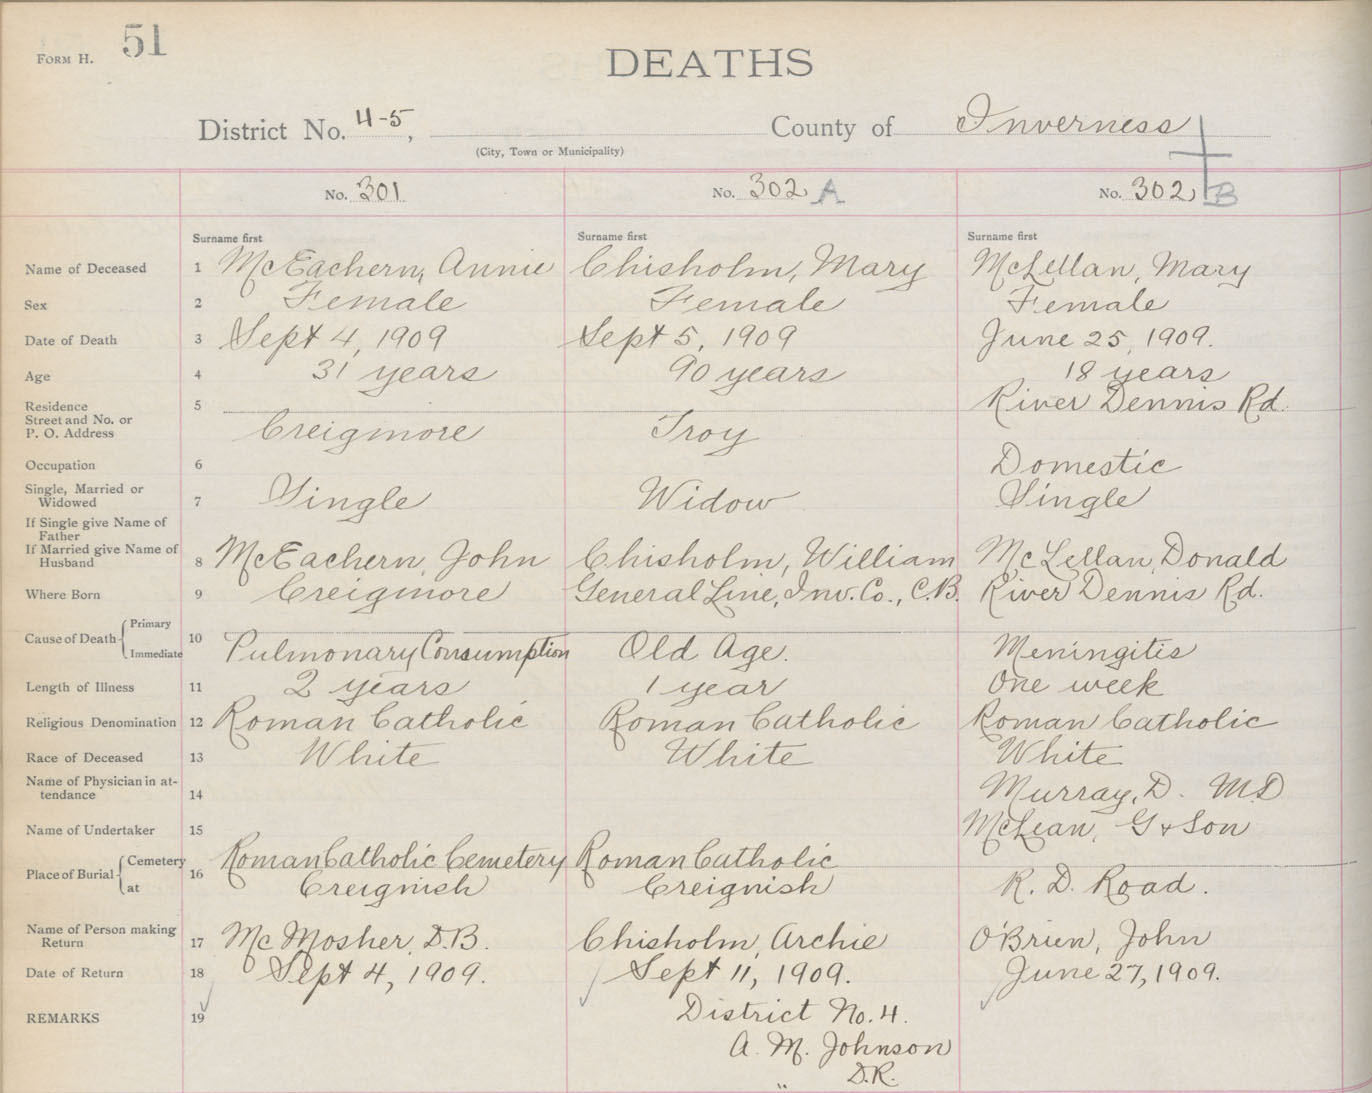 FORM H. 51
DEATHS
District No. 4-5, County of Inverness
(City, Town or Municipality)
No. 301 No. 302 A No. 302 B
Surname first Surname first Surname first
Name of Deceased 1 McEachern, Annie Chisholm, Mary McLellan, Mary
Sex 2 Female Female Female
Date of Death 3 Sept 4, 1909 Sept 5, 1909 June 25, 1909.
Age 4 31 years 90 years 18 years
Residence
Street and No. or
P. O. Address 5 Creigmore Troy River Dennis Rd.
Occupation 6 Domestic
Single, Married or
Widowed 7 Single Widow Single
If Single give Name of
Father
If Married give Name of
Husband 8 McEachern, John Chisholm, William McLellan, Donald
Where Born 9 Creigmore General Line, Inv. Co., C.B. River Dennis Rd.
Cause of Death { Primary
Immediate 10 Pulmonary Consumption Old Age. Meningitis
Length of Illness 11 2 years 1 year One week
Religious Denomination 12 Roman Catholic Roman Catholic Roman Catholic
Race of Deceased 13 White White White
Name of Physician in at-
tendance 14 Murray, D. M.D
Name of Undertaker 15 McLean, G & Son
Place of Burial { Cemetery Roman Catholic Cemetery Roman Catholic
at 16 Creignish Creignish R. D. Road.
Name of Person making
Return 17 McMosher, D.B. Chisholm, Archie O'Brien, John
Date of Return 18 Sept 4, 1909. Sept 11, 1909. June 27, 1909.
REMARKS 19 District No. 4.
A. M. Johnson
D.R.